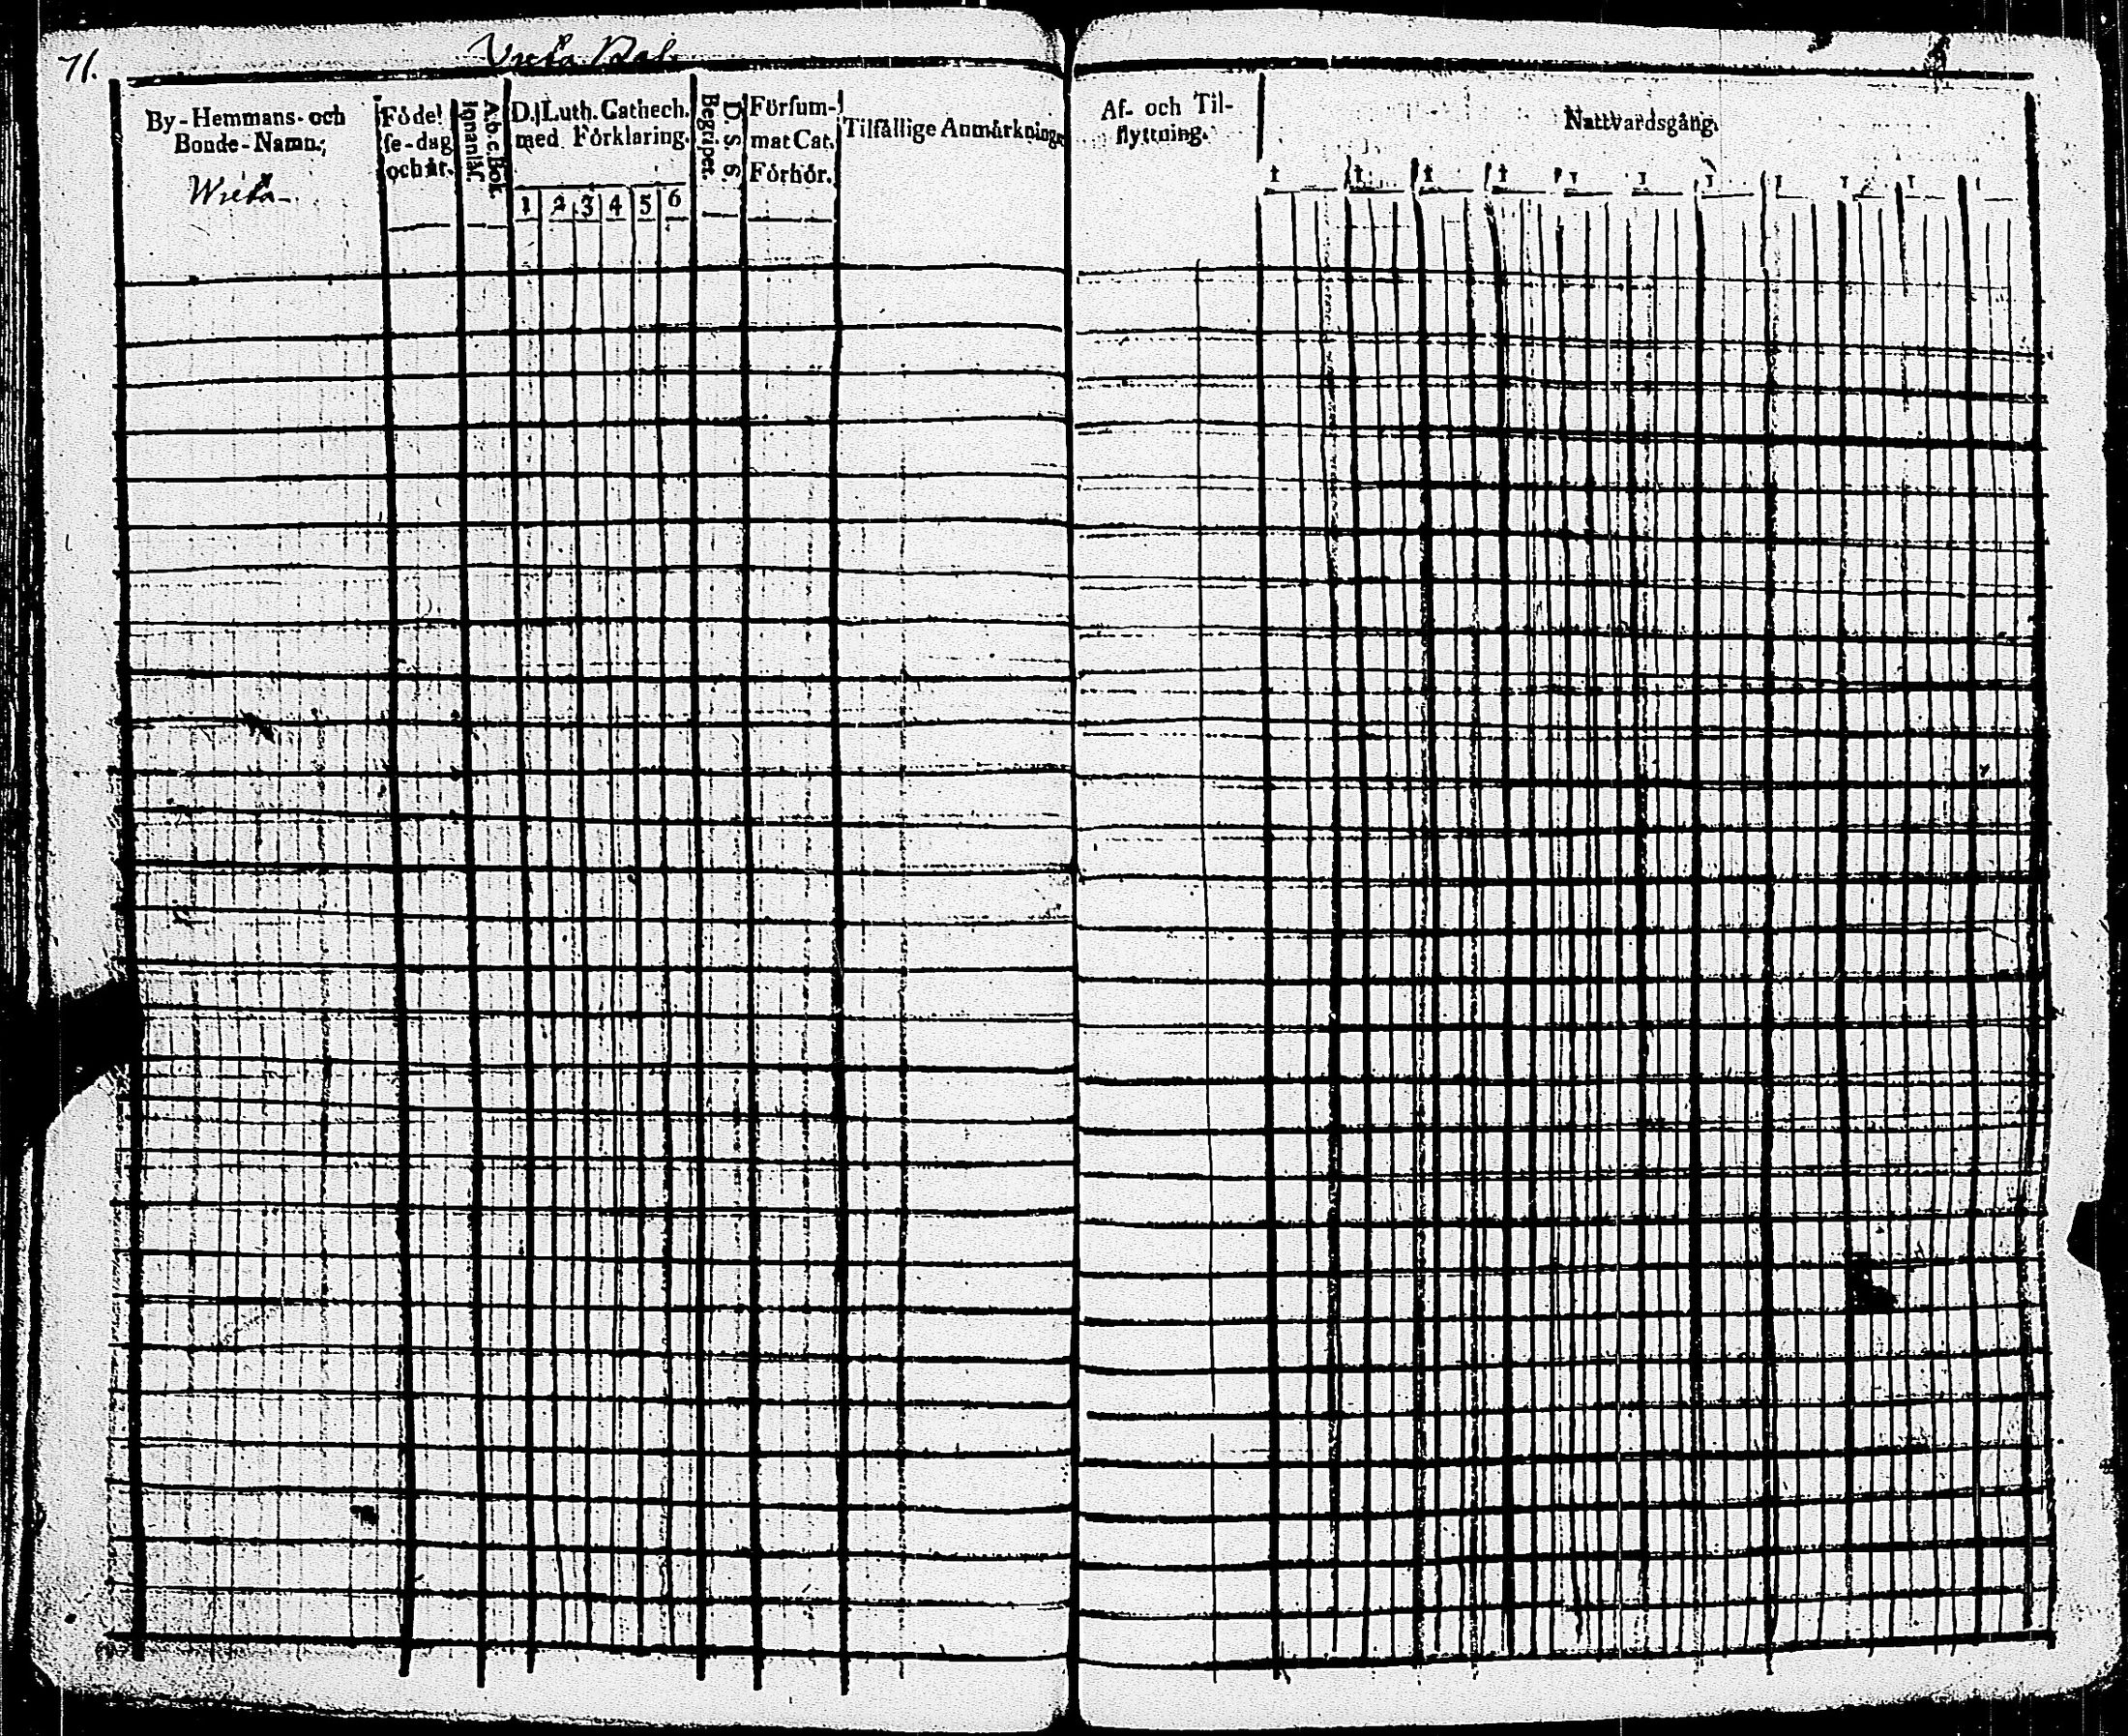 71.
By-Hemmans- och
Bonde-Namn.
Wreta
Födel
se-dag
och år.
A.b.c.Bok
D.|Luth. Cathech.
med Förklaring.
1 2 3 4 5 6
Begriper.
D. S 6
Försum-
mat Cat.
Förhör.
Tilfällige Anmärkning
Af- och Til-
flyttning.
Nattvardsgång.